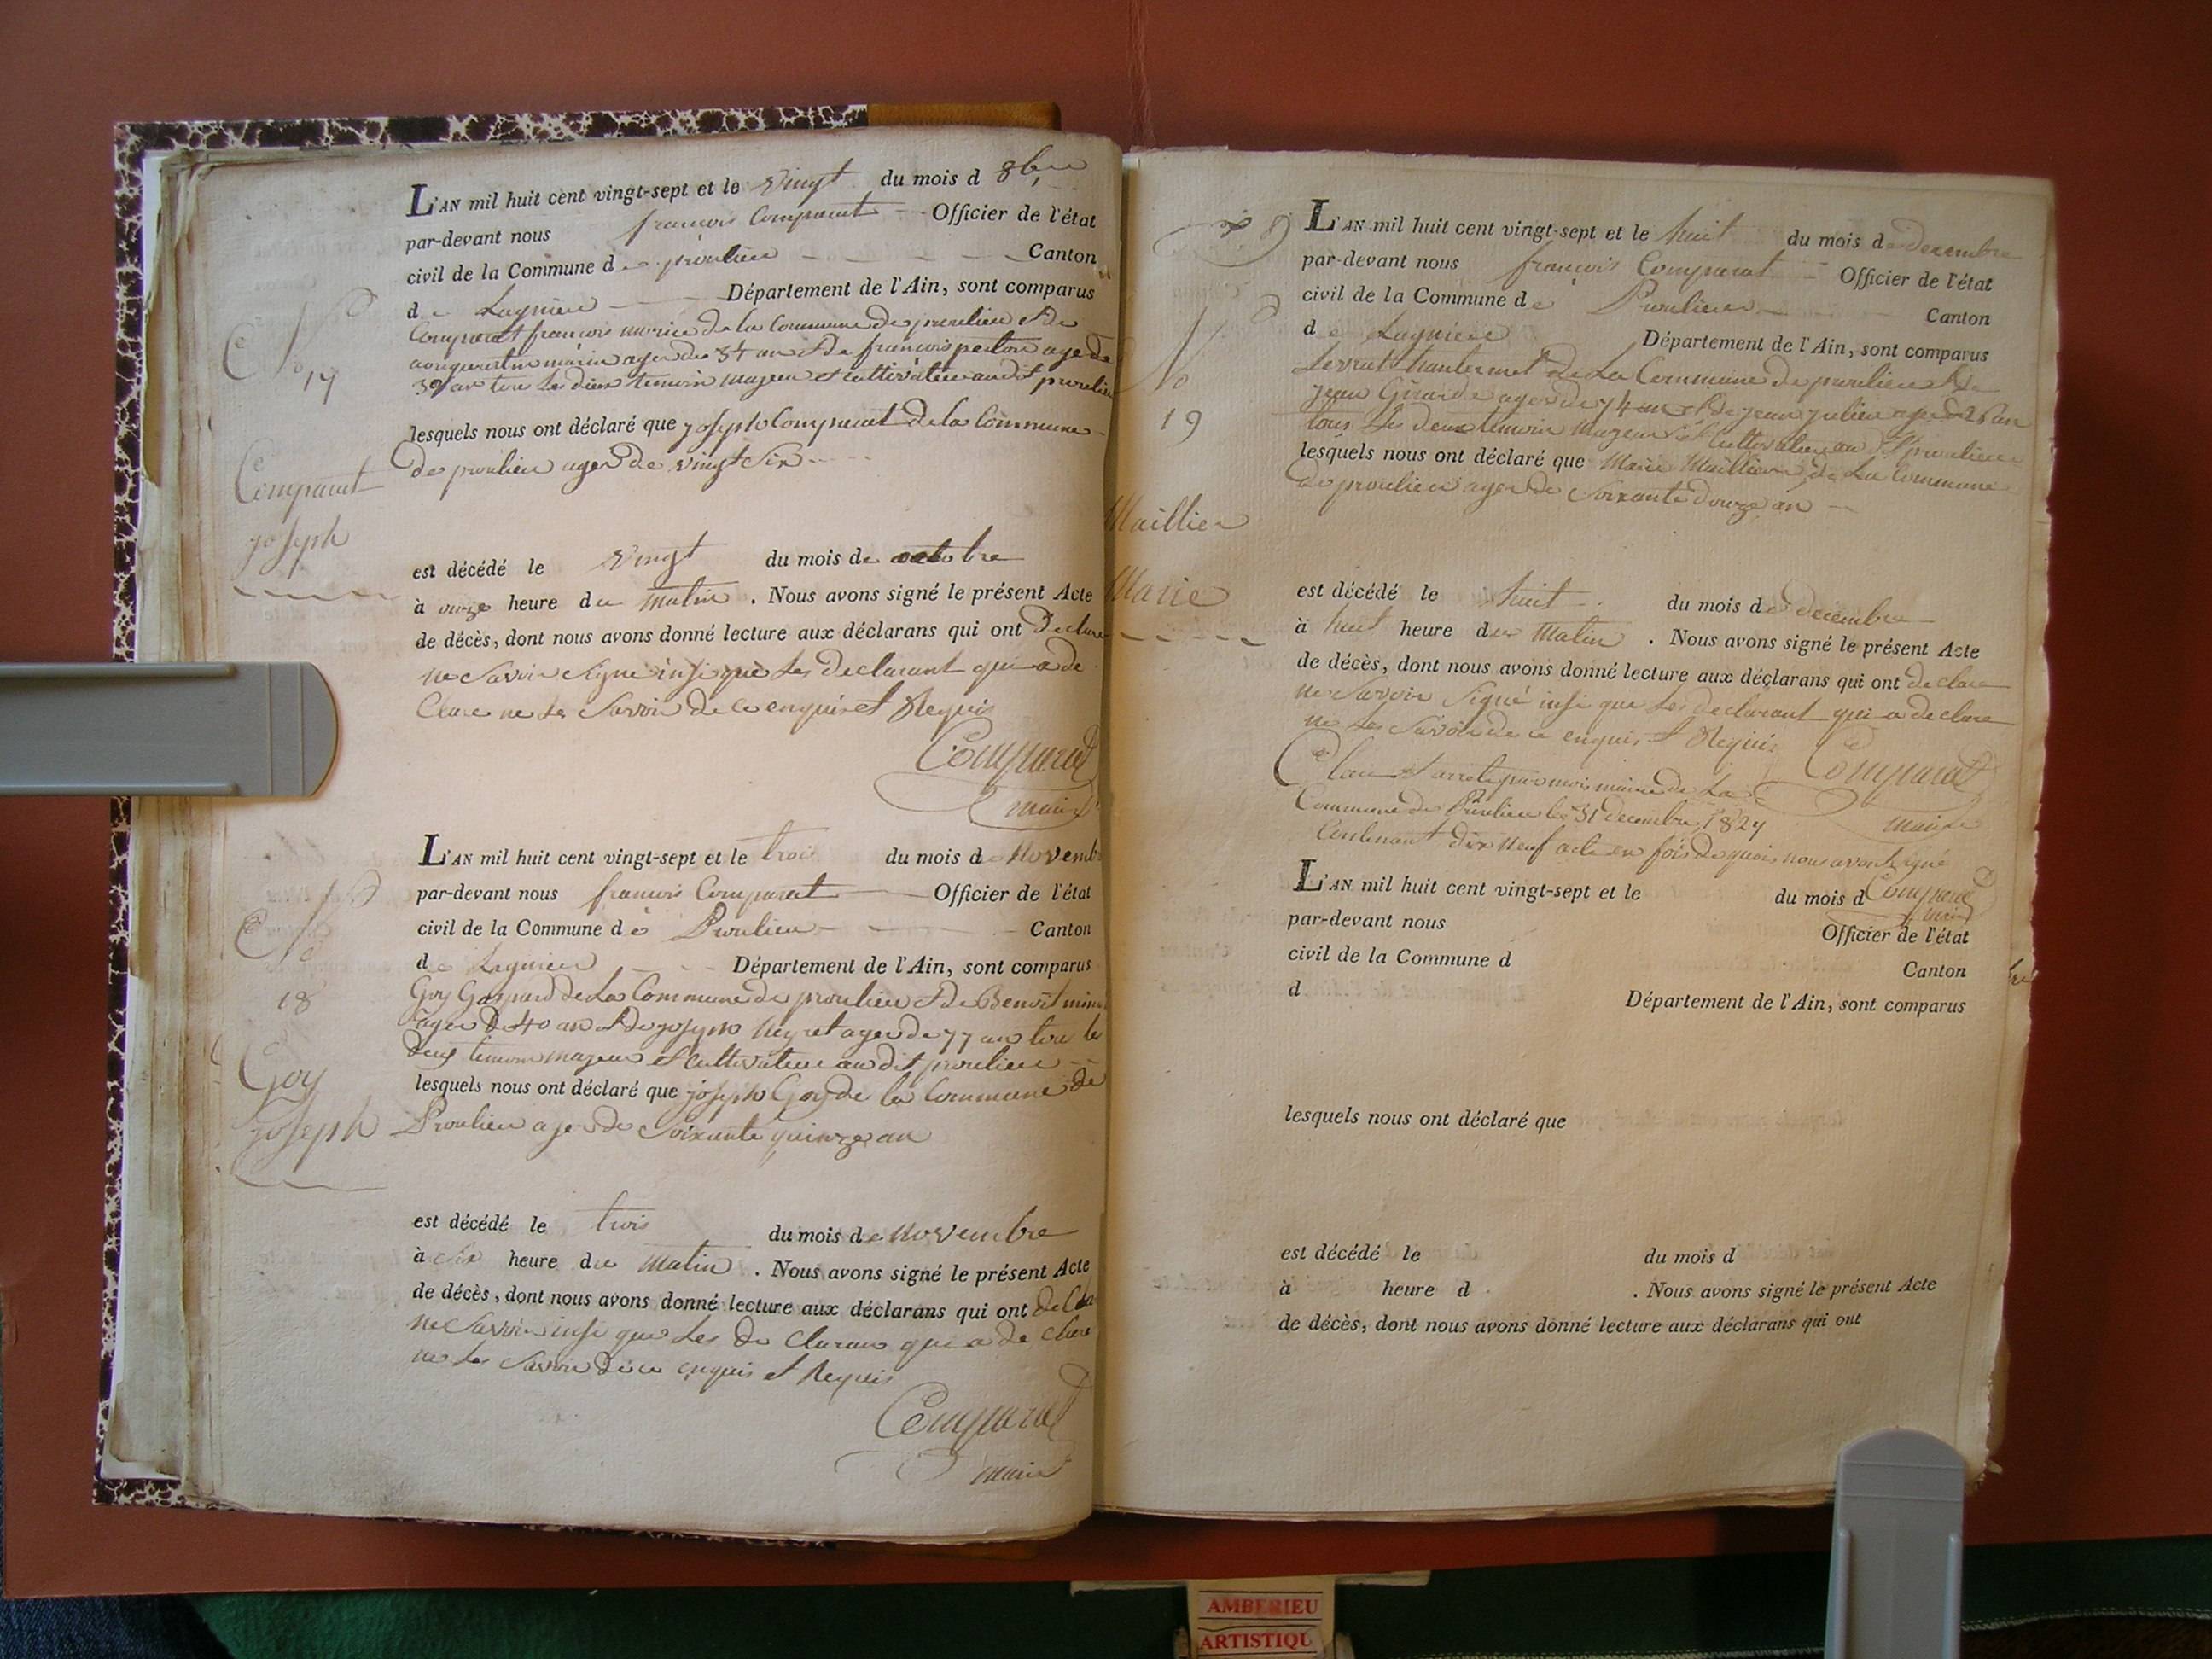 L'AN mil huit cent vingt-sept et le vingt du mois d 8bre
par-devant nous francois Comparat Officier de l'état
civil de la Commune de proulieu Canton
de Lagnieu Département de l'Ain, sont comparus
Comparat francois de la Commune de proulieu et de
marin ager de 54 an et de francois perton age de
39 an tous les deux temoin majeur et cultivateur au dit proulieu
lesquels nous ont déclaré que joseph Comparat de la Commune
de proulieu ager de vingt six
No
17
Comparat
joseph
est décédé le vingt du mois de octobre
à onze heure du matin . Nous avons signé le présent Acte
de décès, dont nous avons donné lecture aux déclarans qui ont Declare
ne savoir signe insi que les declarant qui a de
Clare ne les savoir de ce enquis et Requis
Comparat
maire
L'AN mil huit cent vingt-sept et le trois du mois de Novembre
par-devant nous francois Comparat Officier de l'état
civil de la Commune dé Proulieu Canton
de Lagnieu Département de l'Ain, sont comparus
Goy Gaspard de La Commune de proulieu et de Benoit
ager de 40 an et de joseph Neyret ager de 77 an tou les
deux temoin majeur et cultivateur au dit proulieu
lesquels nous ont déclaré que joseph Goy de la Commune de
Proulieu ager de soixante quinze an
No
18
Goy
joseph
est décédé le trois du mois de Novembre
à heure du matin . Nous avons signé le présent Acte
de décès, dont nous avons donné lecture aux déclarans qui ont
ne savoir insi que les de clarans qui a de clare
ne les savoir de ce enquis et Requis
Comparat
maire
L'AN mil huit cent vingt-sept et le huit du mois de decembre
par-devant nous francois Comparat Officier de l'état
civil de la Commune dé Proulieu Canton
de Lagnieu Département de l'Ain, sont comparus
Levrat de La Commune de proulieu et de
jean Girarde ager de 74 an et de jean julien ager de 26 an
tous les deux temoin majeur et cultivateur au dit proulieu
lesquels nous ont déclaré que Marie Maillier de La Commune
de proulieu ager de soixante douze an
No
19
Maillier
Marie
est décédé le huit du mois de decembre
à huit heure du Matin . Nous avons signé le présent Acte
de décès, dont nous avons donné lecture aux déclarans qui ont declare
ne savoir signé insi que les declarant qui a declare
ne les savoir de ce enquis et Requis Comparat
maire
Clau et arrete par moi maire de La
Commune de Proulieu le 31 decembre 1827
Contenant dix neuf acte en fois de quoi nous avons signé
Comparat
maire
L'AN mil huit cent vingt-sept et le du mois d
par-devant nous Officier de l'état
civil de la Commune d Canton
d Département de l'Ain, sont comparus
lesquels nous ont déclaré que
est décédé le du mois d
à heure d . Nous avons signé le présent Acte
de décès, dont nous avons donné lecture aux déclarans qui ont
AMBERIEU
ARTISTIQU